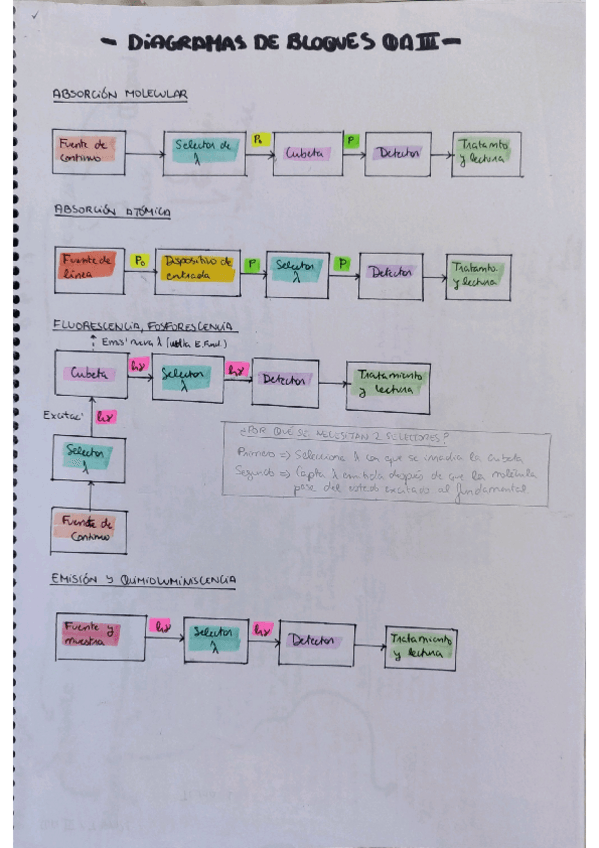 - DIAGRAMAS DE BLOQUES QA III -
ABSORCIÓN MOLECULAR
Fuente de continuo
Selector de λ
P₀
Cubeta
P
Detector
Tratamto y lectura
ABSORCIÓN ATÓMICA
Fuente de línea
P₀
Dispositivo de entrada
P
Selector λ
P
Detector
Tratamto y lectura
FLUORESCENCIA, FOSFORESCENCIA
Emis° nueva λ (vuelta E. Fund.)
Cubeta
hν
Selector λ
hν
Detector
Tratamiento y lectura
Excitac° hν
Selector λ
Fuente de Continuo
¿POR QUÉ SE NECESITAN 2 SELECTORES?
Primero => Selecciona λ con que se irradia la cubeta
Segundo => Capta λ emitida después de que la molécula
pase del estado excitado al fundamental
EMISIÓN Y QUIMIOLUMINISCENCIA
Fuente y muestra
hν
Selector λ
hν
Detector
Tratamiento y lectura